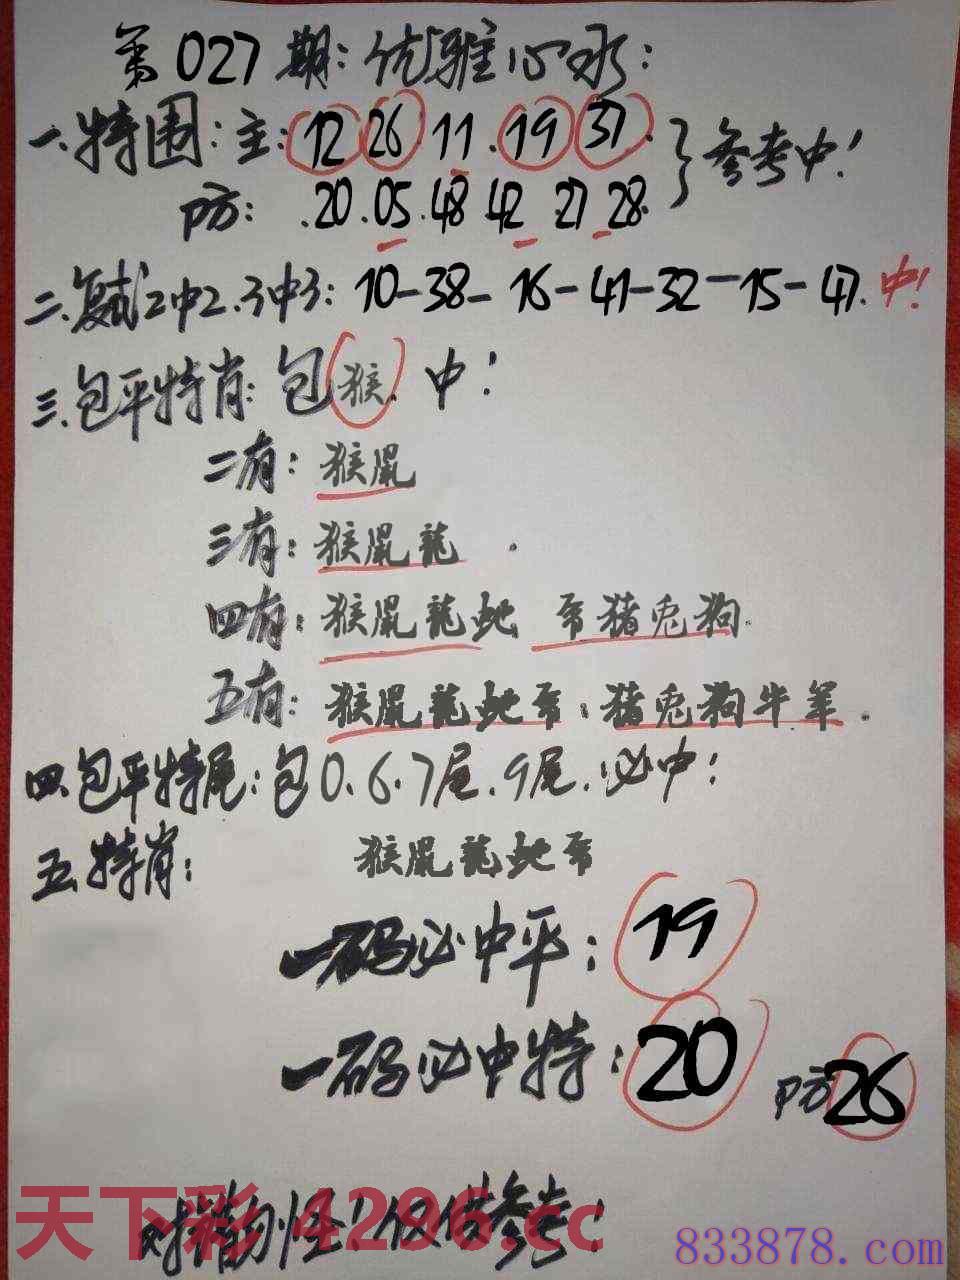 第027期:优雅心水:
一.特围:主:12 26.11.19 37.
防:.20.05.48.42 27 28.
}参考中!
二.复试2中2.3中3:10-38-16-41-32-15-47.中!
三.包平特肖:包猴.中!
二有:猴鼠
三有:猴鼠龍.
四有:猴鼠龍蛇 马猪兔狗.
五有:猴鼠龍蛇马.猪兔狗牛羊.
四.包平特尾:包0.6.7尾.9尾.必中!
五.特肖: 猴鼠龍蛇马
一码必中平:19
一码必中特:20 防26
对措勿怪!仅供参考!
天下彩 4296.cc
833878.com